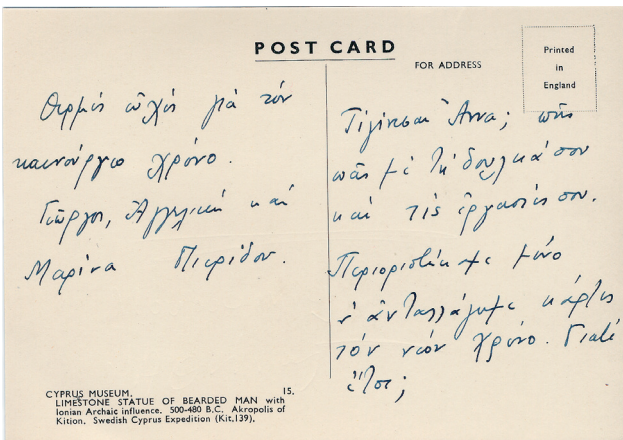 POST CARD
FOR ADDRESS
Printed
in
England
Θερμές εὐχές γιὰ τόν
καινούργιο χρόνο.
Γιῶργος, Ἀγγελική καί
Μαρίνα Πιερίδου.
Τί γίνεσαι Ἄννα; πῶς
πᾶς μέ τή δουλειά σου
καί τίς ἐργασίες σου.
Περιοριστήκαμε μόνο
ν' ἀνταλλάγουμε κάρτες
τόν νέον χρόνο. Γιατί
ἔτσι;
CYPRUS MUSEUM. 15.
LIMESTONE STATUE OF BEARDED MAN with
Ionian Archaic influence. 500-480 B.C. Akropolis of
Kition. Swedish Cyprus Expedition (Kit.139).